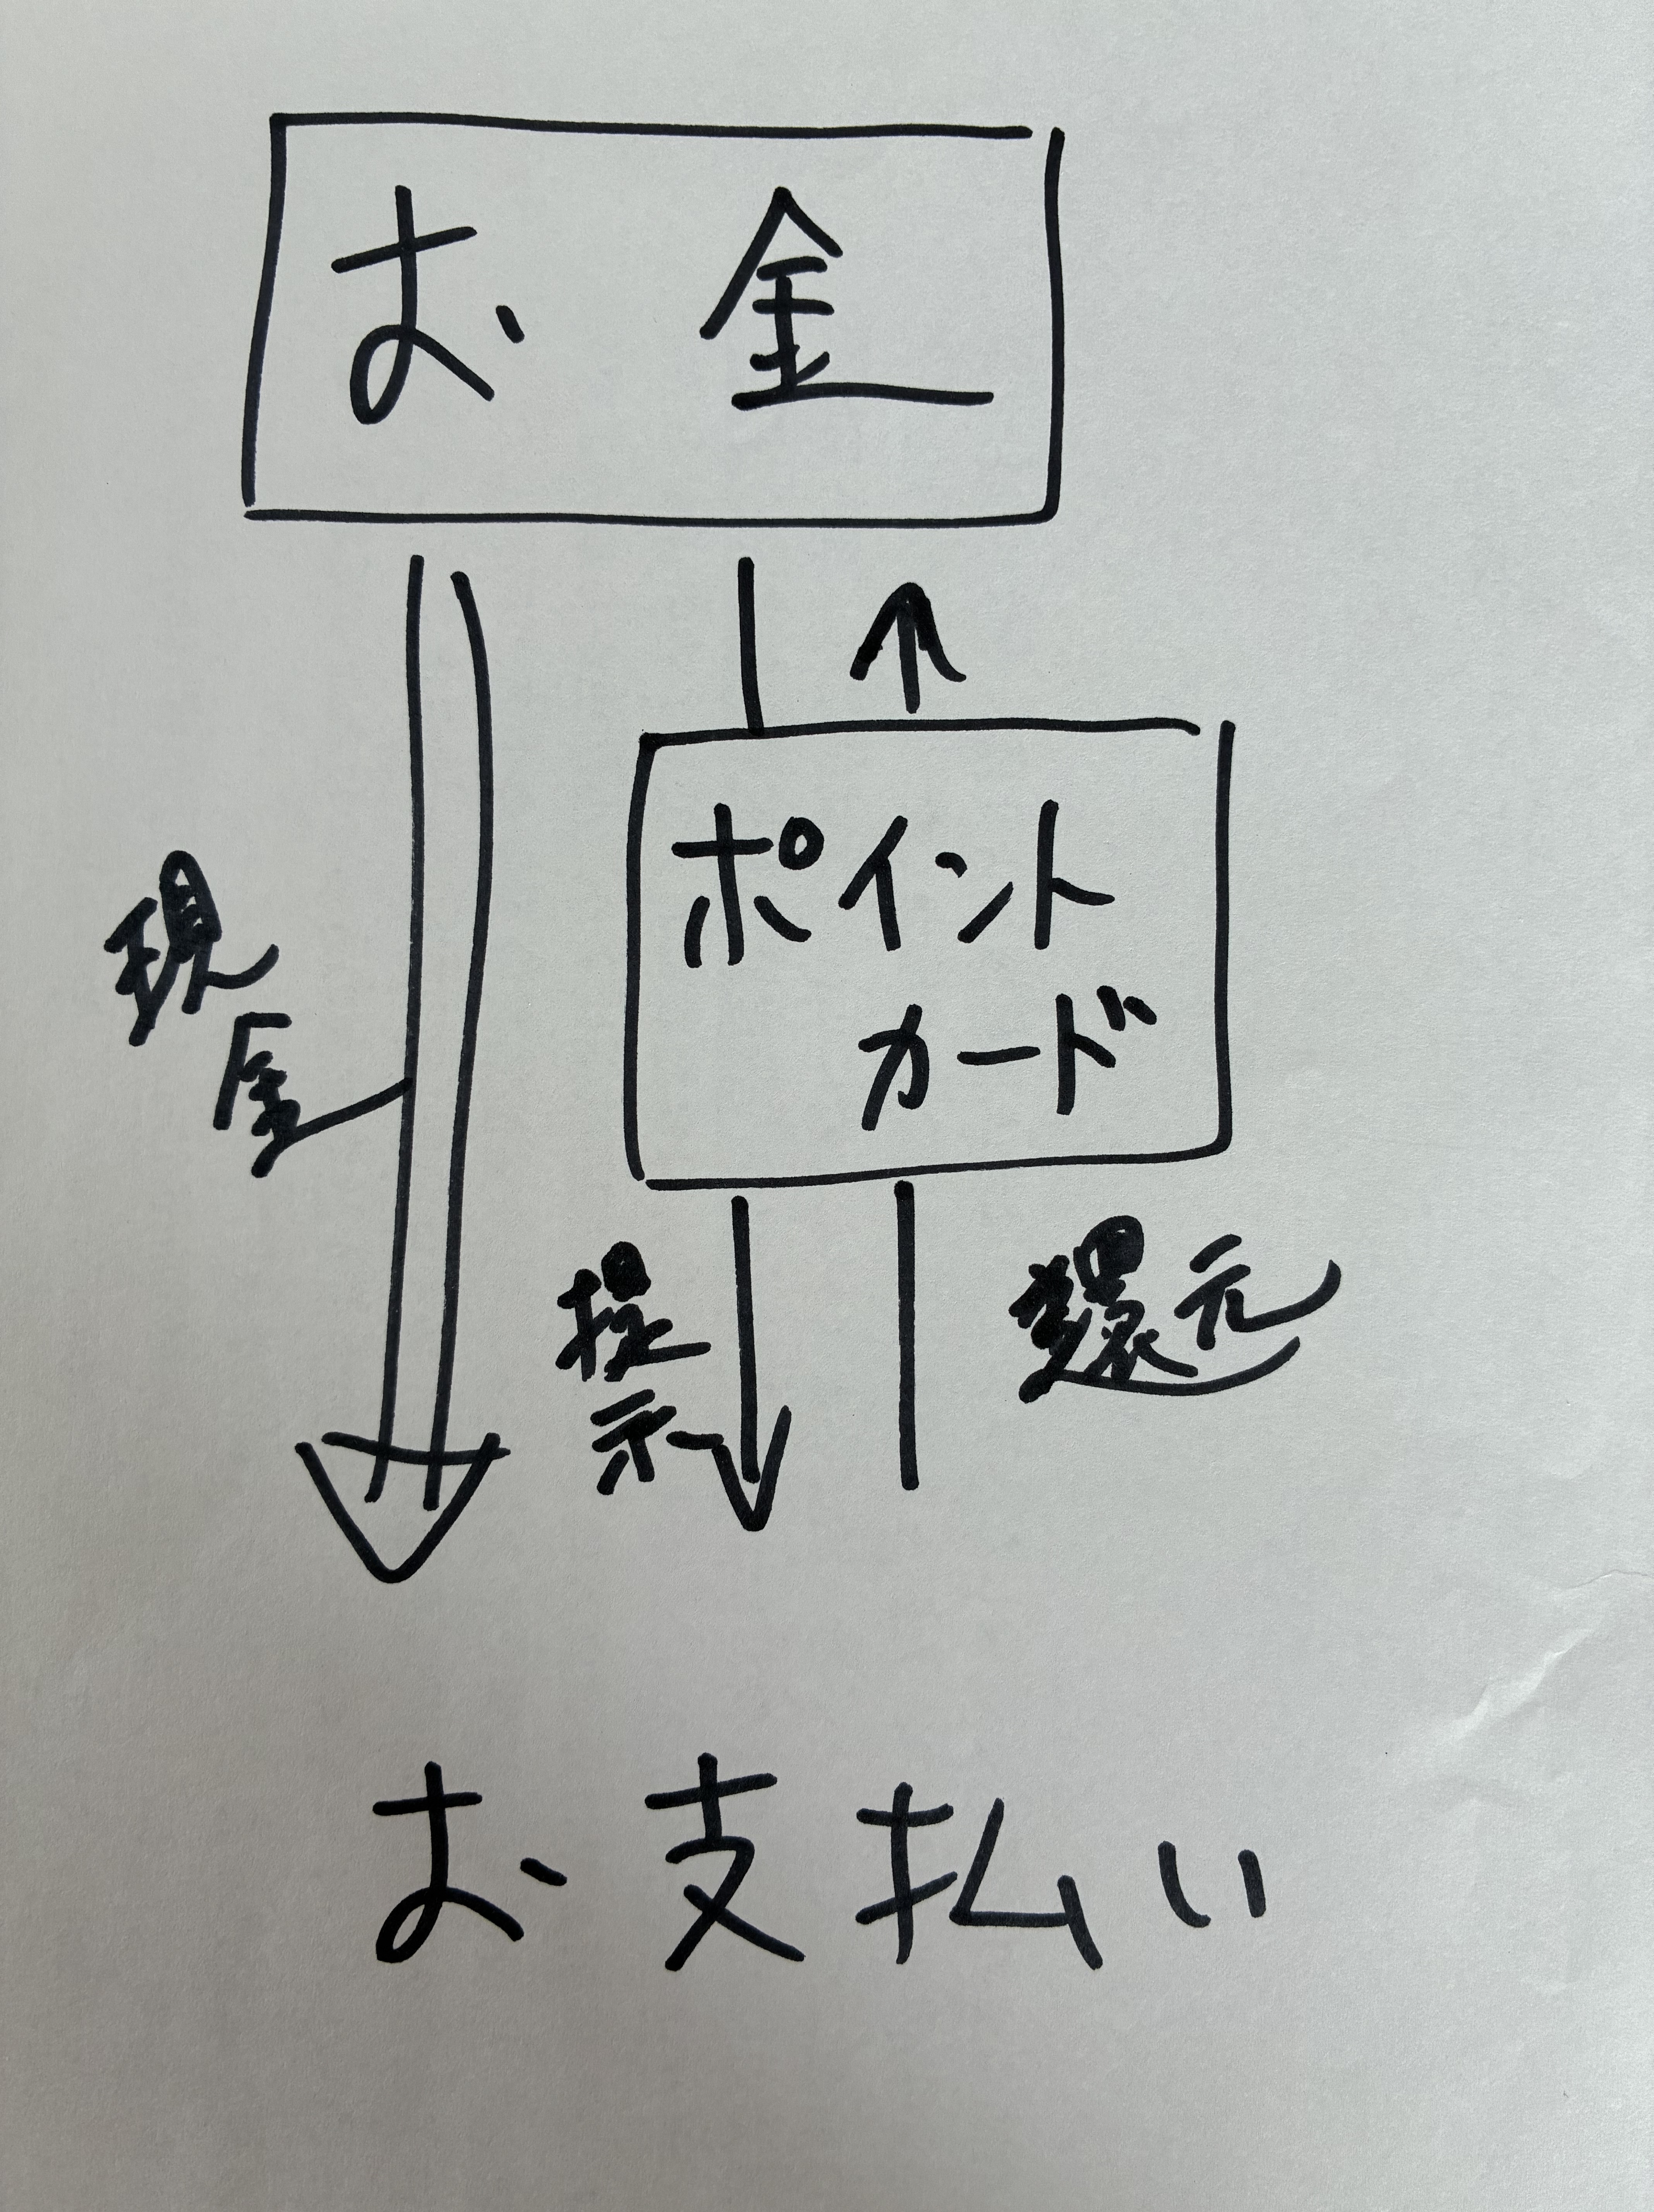 お金
現金
ポイント
カード
提示
還元
お支払い